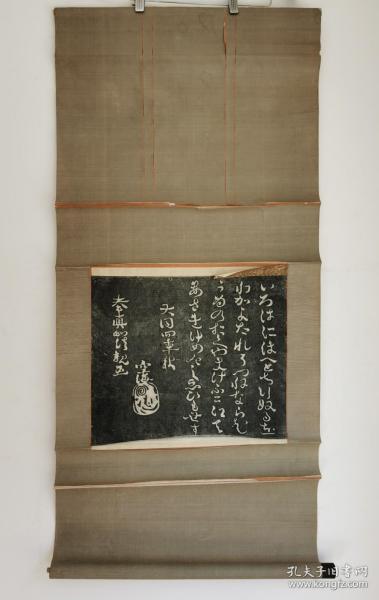 いろはにほへとちり奴るを
わかよたれそつねならむ
うゐのおくやまけふこ江て
あさきゆめみしゑひもせす
大同四年秋
空海
孔夫子旧书网
www.kongfz.com